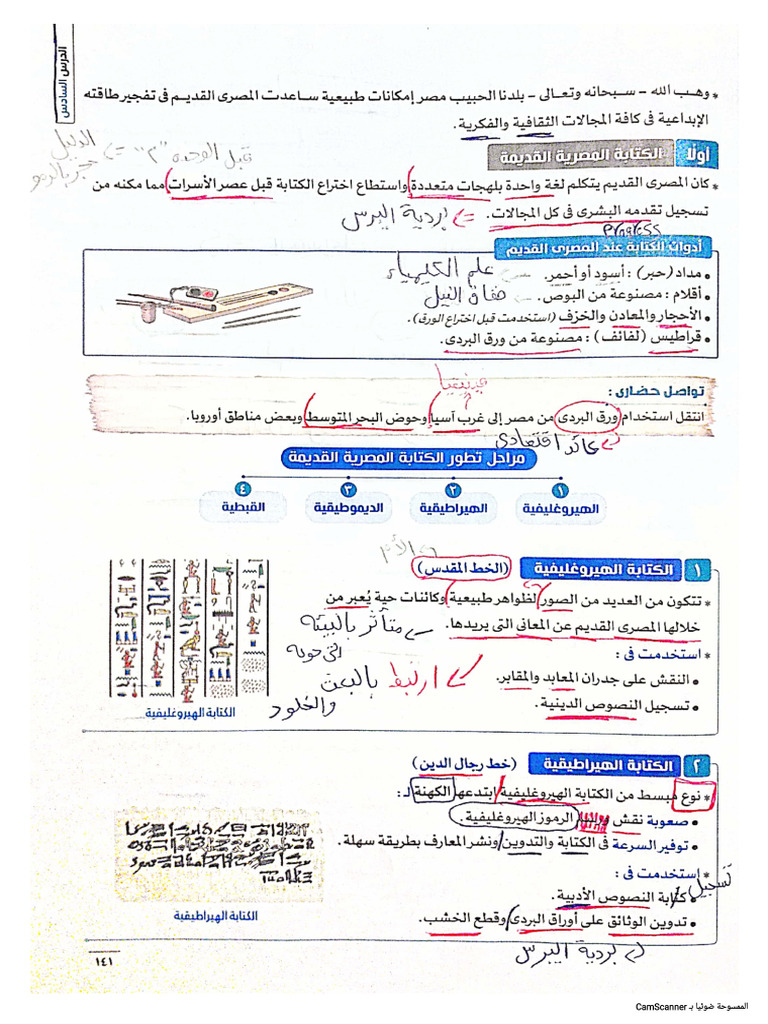 الدرس السادس
* وهب الله - سبحانه وتعالى - بلدنا الحبيب مصر إمكانات طبيعية ساعدت المصرى القديم فى تفجير طاقته
الإبداعية فى كافة المجالات الثقافية والفكرية.
قبل الوحدة "٣" => الدليل
حجر بالرمو
أولًا الكتابة المصرية القديمة
* كان المصرى القديم يتكلم لغة واحدة بلهجات متعددة واستطاع اختراع الكتابة قبل عصر الأسرات مما مكنه من
تسجيل تقدمه البشرى فى كل المجالات. => بردية ايبرس
أدوات الكتابة عند المصرى القديم
• مداد (حبر) : أسود أو أحمر. علم الكيمياء
• أقلام : مصنوعة من البوص. ضفاف النيل
• الأحجار والمعادن والخزف (استخدمت قبل اختراع الورق).
• قراطيس (لفائف) : مصنوعة من ورق البردى.
تواصل حضارى :
انتقل استخدام ورق البردى من مصر إلى غرب آسيا وحوض البحر المتوسط وبعض مناطق أوروبا.
عائد اقتصادى
مراحل تطور الكتابة المصرية القديمة
١ ٢ ٣ ٤
الهيروغليفية الهيراطيقية الديموطيقية القبطية
١ الكتابة الهيروغليفية (الخط المقدس)
* تتكون من العديد من الصور لظواهر طبيعية وكائنات حية يُعبر من
خلالها المصرى القديم عن المعانى التى يريدها. متأثر بالبيئة
التى حوله
* استخدمت فى :
• النقش على جدران المعابد والمقابر. ارتبط بالبعث
والخلود
• تسجيل النصوص الدينية.
الكتابة الهيروغليفية
٢ الكتابة الهيراطيقية (خط رجال الدين)
* نوع مبسط من الكتابة الهيروغليفية ابتدعها الكهنة لـ :
• صعوبة نقش الرموز الهيروغليفية.
• توفير السرعة فى الكتابة والتدوين ونشر المعارف بطريقة سهلة.
* استخدمت فى :
تسجيل
• كتابة النصوص الأدبية.
• تدوين الوثائق على أوراق البردى وقطع الخشب.
بردية ايبرس
الكتابة الهيراطيقية
١٤١
الممسوحة ضوئيا بـ CamScanner